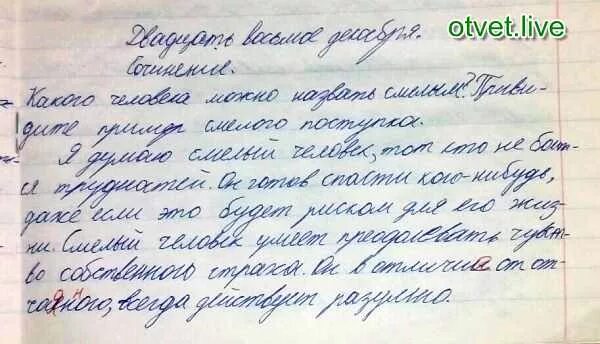 otvet.live
Двадцать восьмое декабря.
Сочинение.
Какого человека можно назвать смелым? Приви-
дите пример смелого поступка.
Я думаю смелый человек, тот кто не боит-
ся трудностей. Он готов спасти кого-нибудь,
даже если это будет риском для его жиз-
ни. Смелый человек умеет преодолевать чувст-
во собственного страха. Он в отличии от от-
чаянного, всегда действует разумно.